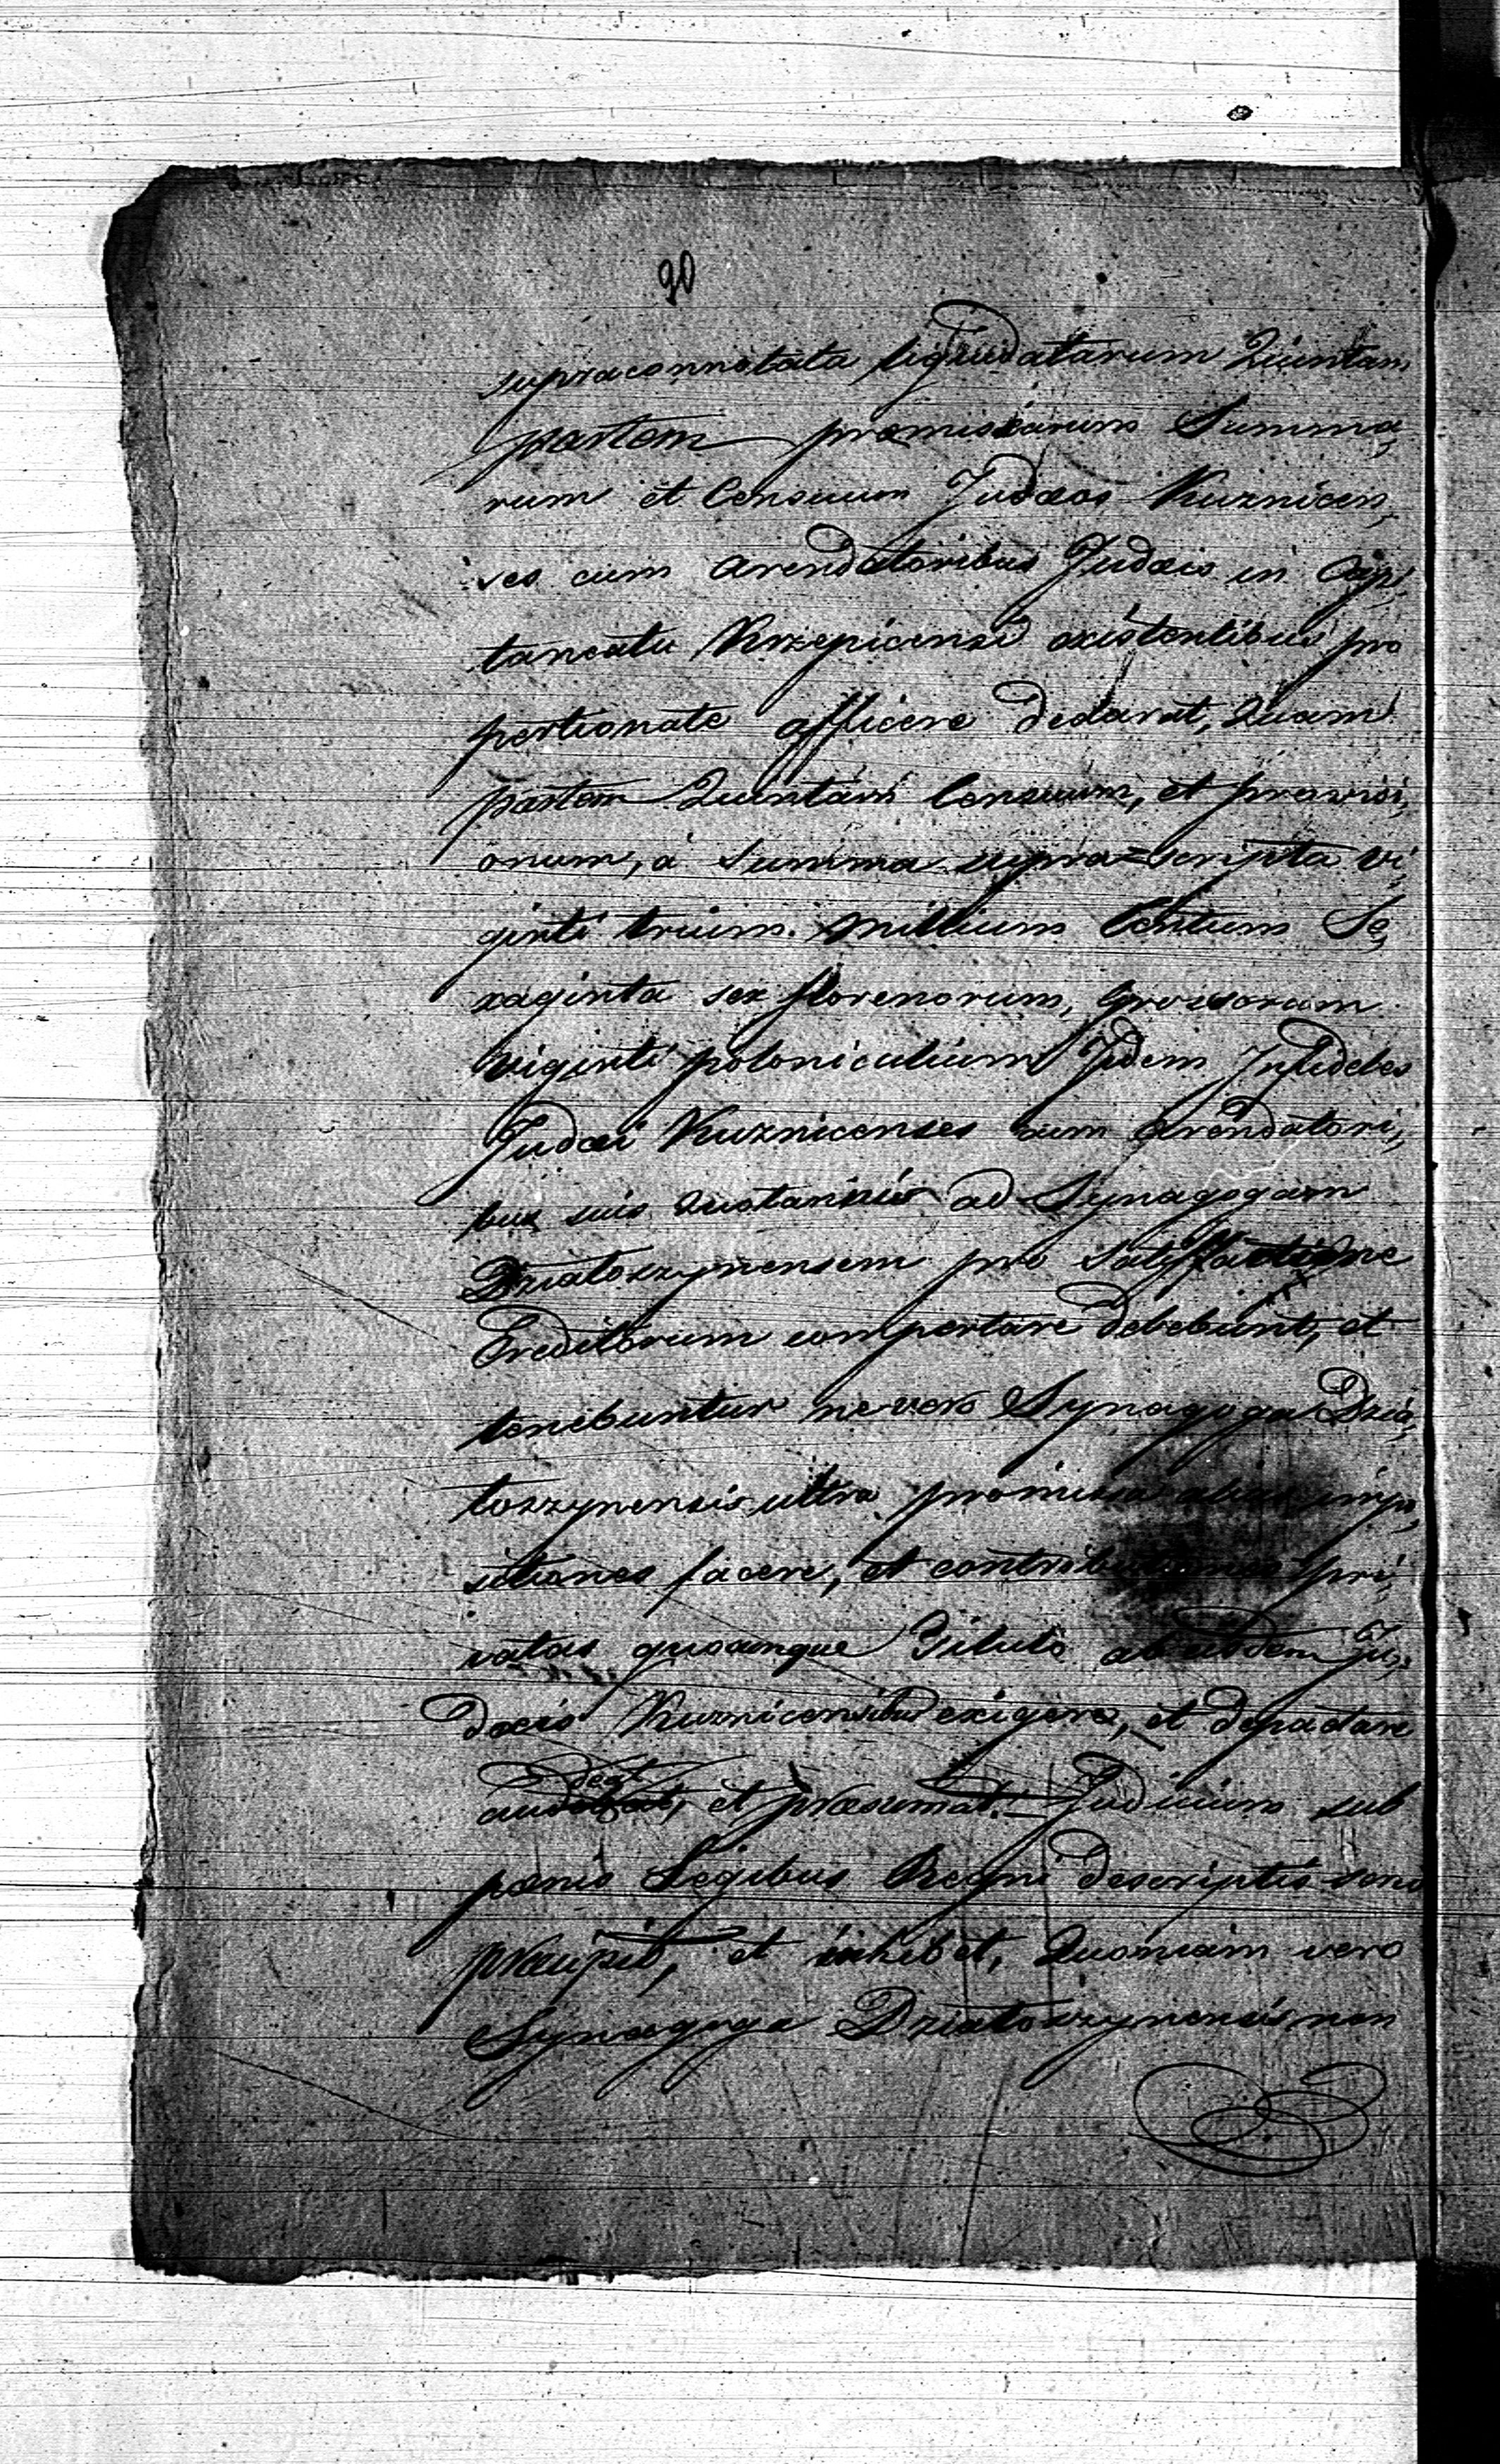 90
supraconnotata liquidatarum Quintam
partem præmissarum Summa,
rum et Censuum Judæos Kuznicen,
ses cum Arendatoribus Judæis in Capi,
taneatu Krzepicensi existentibus pro
portionate afficere declarat, Quam
partem Quintam Censuum, et provisi,
onum, á Summa supra=scripta vi,
ginti trium Millium Centum Se,
xaginta sex florenorum, Grossorum
viginti polonicalium Jidem Infideles
Judæi Kuznicenses cum Arendatori,
bus suis Quotannis ad Synagogam
Dziatoszynensem pro satisfactione
Creditorum comportare debebunt, et
tenebuntur ne vero Synagoga Dzia,
toszynensis ultra præmissa alias impo,
sitiones facere, et contributiones pri,
vatas quocunque Titulo ab iisdem Ju,
dæis Kuznicensibus exigere, et depactare
audeat, et præsumat. Judicium sub
pœnis Legibus Regni descriptis serio
præcipit, et inhibet, Quoniam vero
Synagoga Dziatoszynensis non